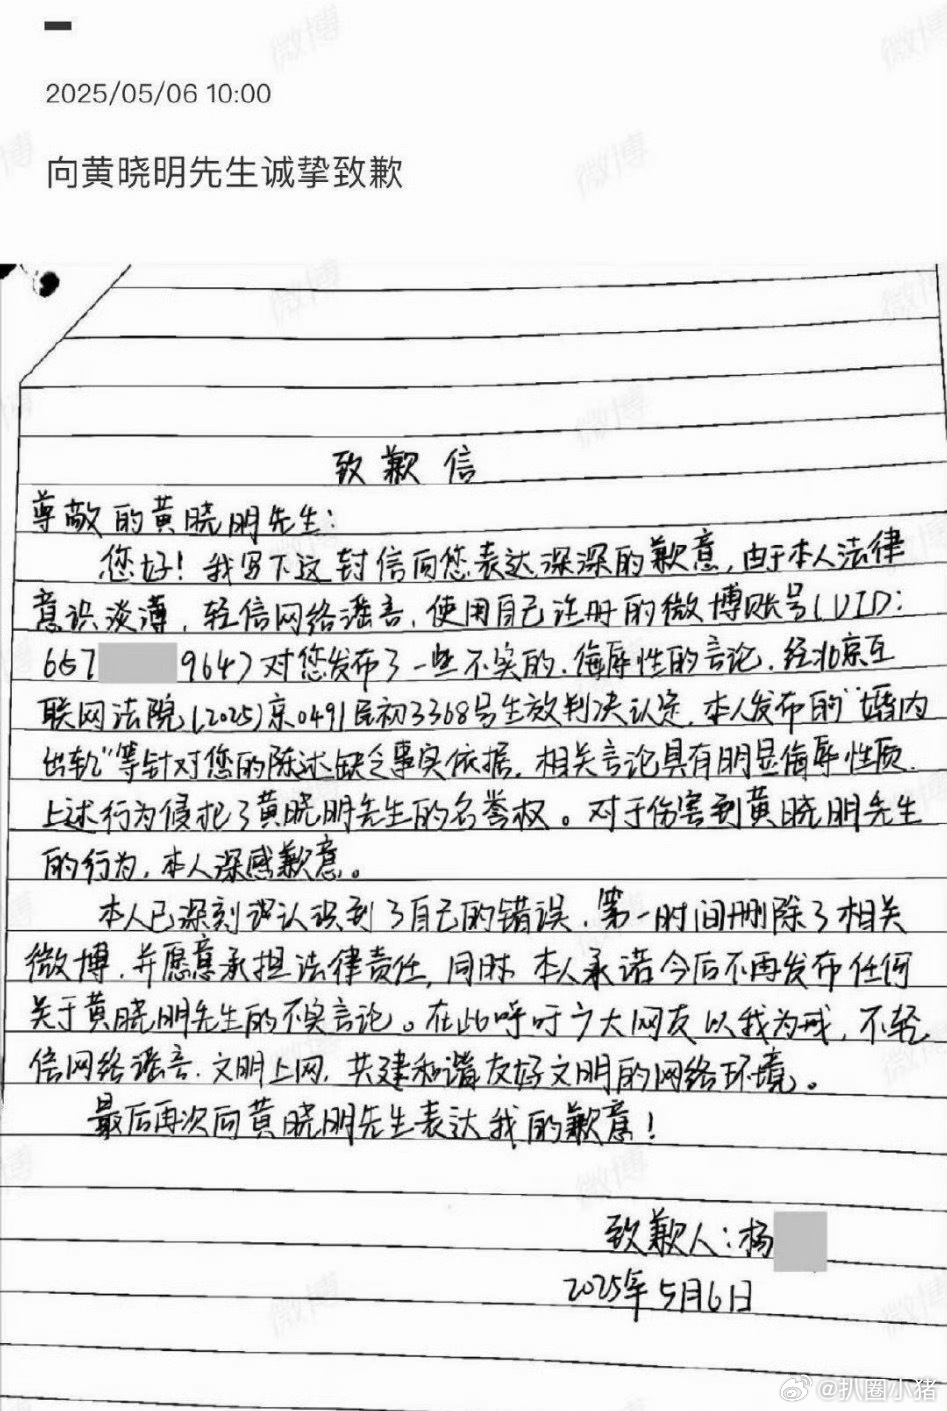 2025/05/06 10:00
向黄晓明先生诚挚致歉
致歉信
尊敬的黄晓明先生:
您好!我写下这封信向您表达深深的歉意,由于本人法律
意识淡薄,轻信网络谣言,使用自己注册的微博账号(UID:
667 9647)对您发布了一些不实的、侮辱性的言论,经北京互
联网法院(2025)京0491民初3368号生效判决认定,本人发布的“婚内
出轨”等针对您的陈述缺乏事实依据,相关言论具有明显侮辱性质.
上述行为侵犯了黄晓明先生的名誉权。对于伤害到黄晓明先生
的行为,本人深感歉意。
本人已深刻认识到了自己的错误,第一时间删除了相关
微博,并愿意承担法律责任,同时,本人承诺今后不再发布任何
关于黄晓明先生的不实言论。在此呼吁广大网友以我为戒,不轻
信网络谣言,文明上网,共建和谐友好文明的网络环境。
最后再次向黄晓明先生表达我的歉意!
致歉人:杨
2025年5月6日
微博
@扒圈小猪